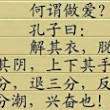 何谓做爱?
孔子曰:
解其衣,脱
其阴,上下手
,退三分,反
潮,兴奋也!